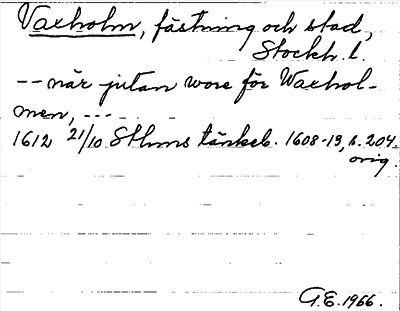 Vaxholm, fästning och stad,
Stockh. l.
-- när jutan wore för Waxhol-
men, ---
1612 21/10 Sthms tänkeb. 1608-13, s. 204.
orig.
G.E. 1966.